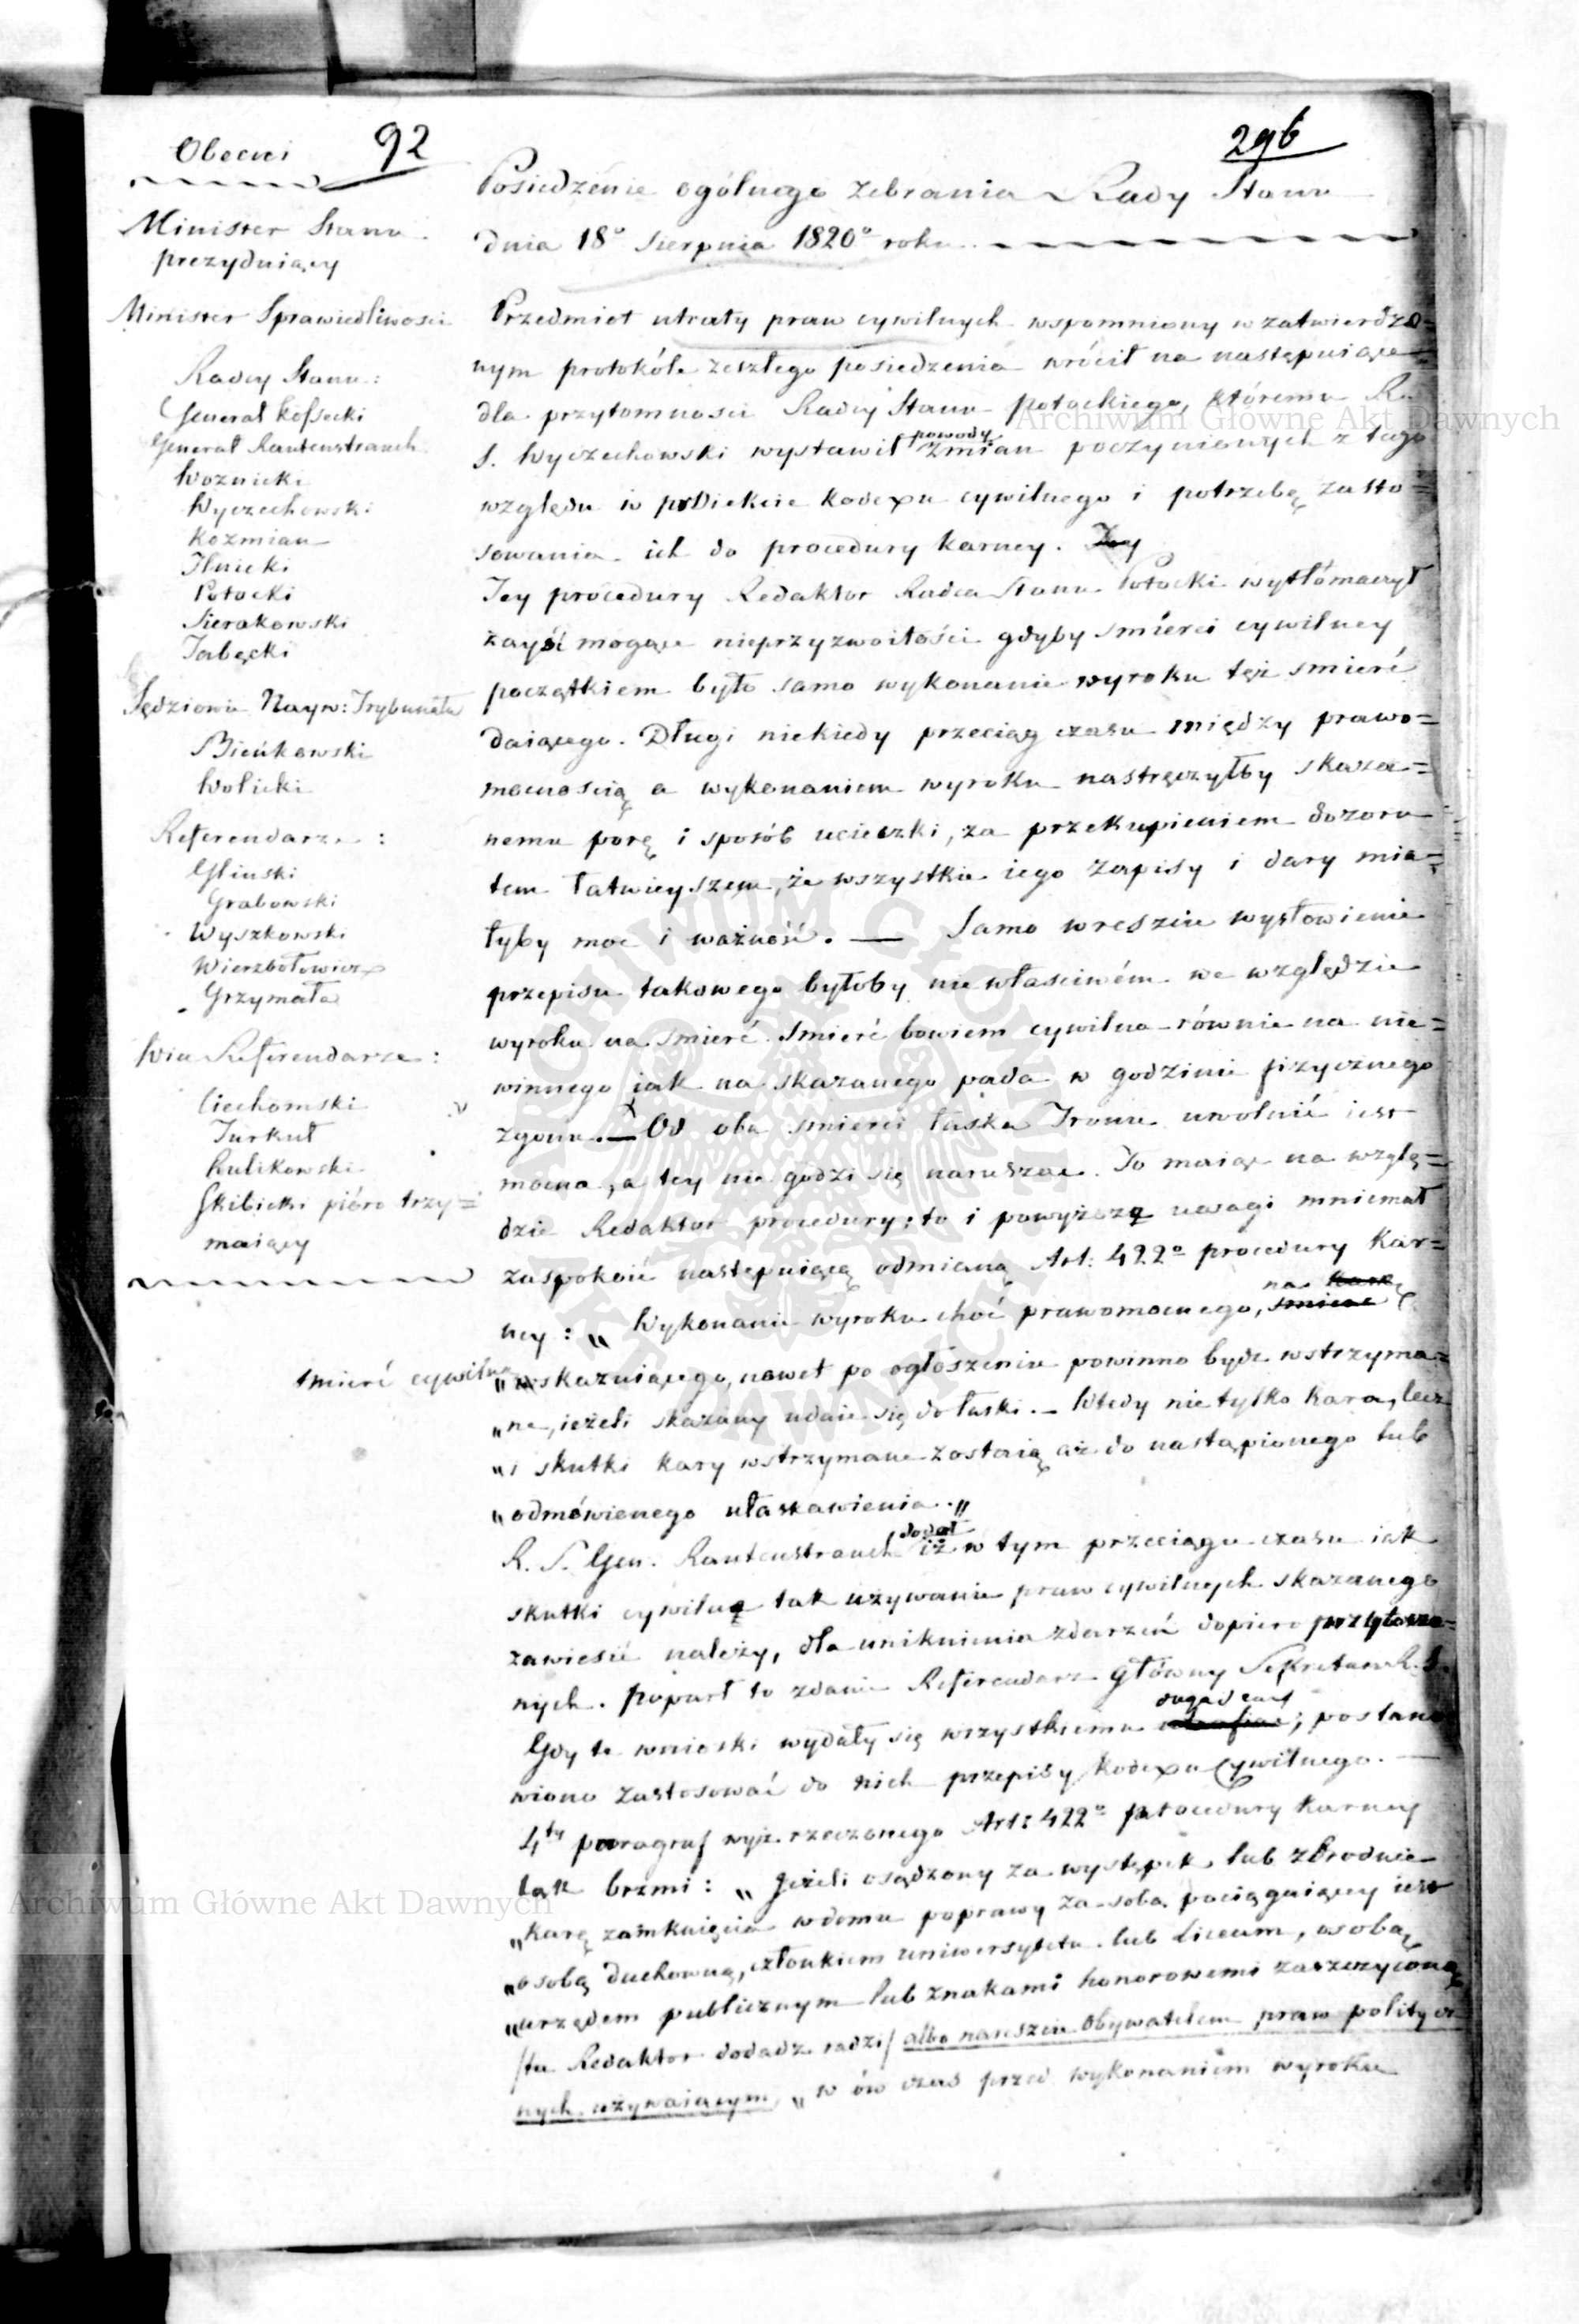 Obecni 92
296
Minister Stanu
prezyduiący
Minister Sprawiedliwosci
Radcy Stanu:
Generał Kossecki
Generał Rautenstrauch
Woznicki
Wyczechowski
Kozmian
Ilnicki
Potocki
Sierakowski
Sędziowie Nayw: Trybunału
Bieńkowski
Wolicki
Referendarze:
Gliński
Grabowski
Wyszkowski
Wierzbołowicz
Grzymała
Wice Referendarze:
Ciechomski
Turkuł
Kulikowski
Skibicki pióro trzy=
maiący
Smierć cywilną
Posiedzénie ogólnego zebrania Rady Stanu
dnia 18o Sierpnia 1820o roku.
Przedmiot utraty praw cywilnych wspomniony w zatwierdzo=
nym protokóle zeszłego posiedzenia wrócił na następuiące
dla przytomnosci Radcy Stanu Potockiego, któremu R.
S. Wyczechowski wystawił powody zmian poczynionych z tego
względu w proiekcie Kodexu cywilnego i potrzebę zasto=
sowania ich do procedury karney. Tey
Tey procedury Redaktor Radca Stanu Potocki wytłómaczył
zayść mogące nieprzyzwoitości gdyby smierci cywilney
początkiem było samo wykonanie wyroku też smierć
daiącego. Długi niekiedy przeciąg czasu między prawo=
mocnoscią a wykonaniem wyroku nastręczyłby skaza=
nemu porę i sposób ucieczki, za przekupieniem dozoru
tem łatwieyszem, że wszystkie iego zapisy i dary mia=
łyby moc i ważność. — Samo wreszcie wysłowienie
przepisu takowego byłoby niewłasciwém we względzie
wyroku na smierć. Smierć bowiem cywilna równie na nie=
winnego iak na skazanego pada w godzinie fizycznego
zgonu. — Od obu smierci łaska Tronu uwolnić iest
mocna, a tey nie godzi się naruszac. To maiąc na wzglę=
dzie Redaktor procedury; to i powyższą uwagi mniemał
zaspokoić następuiącą odmianą Art: 422o procedury Kar=
ney: „Wykonanie wyroku choć prawomocnego, na karę smierć
„skazuiącego, nawet po ogłoszeniu powinno bydz wstrzyma=
„ne, ieżeli skazany udaie się do łaski. — Wtedy nie tylko kara, lecz
„i skutki kary wstrzymane zostaią aż do nastąpionego lub
„odmówienego ułaskawienia.„
R. S. Gen. Rautenstrauch dodał iż w tym przeciągu czasu iak
skutki cywilne tak używanie praw cywilnych skazanego
zawiesić należy, dla uniknienia zdarzeń dopiero przytoczo=
nych. Poparł to zdanie Referendarz Główny Sekretarz R. S.
Gdy te wnioski wydały się wszystkiemu ; postano=
wiono zastosować do nich przepisy Kodexu Cywilnego. —
4ty paragraf wyż rzeczonego Art: 422o procedury Karney
tak brzmi: „Jeżeli osądzony za występek lub zbrodnie
„karę zamknięcia w domu poprawy za sobą pociągaiący iest
„osobą duchowną, członkiem uniwersytetu lub Liceum, osobą
„urzędem publicznym lub znakami honorowemi zaszczyconą
/tu Redaktor dodadz radzi/ albo nareszcie Obywatelem praw politycz=
nych używaiącym, „w ów czas przed wykonaniem wyroku
Archiwum Główne Akt Dawnych
Archiwum Główne Akt Dawnych